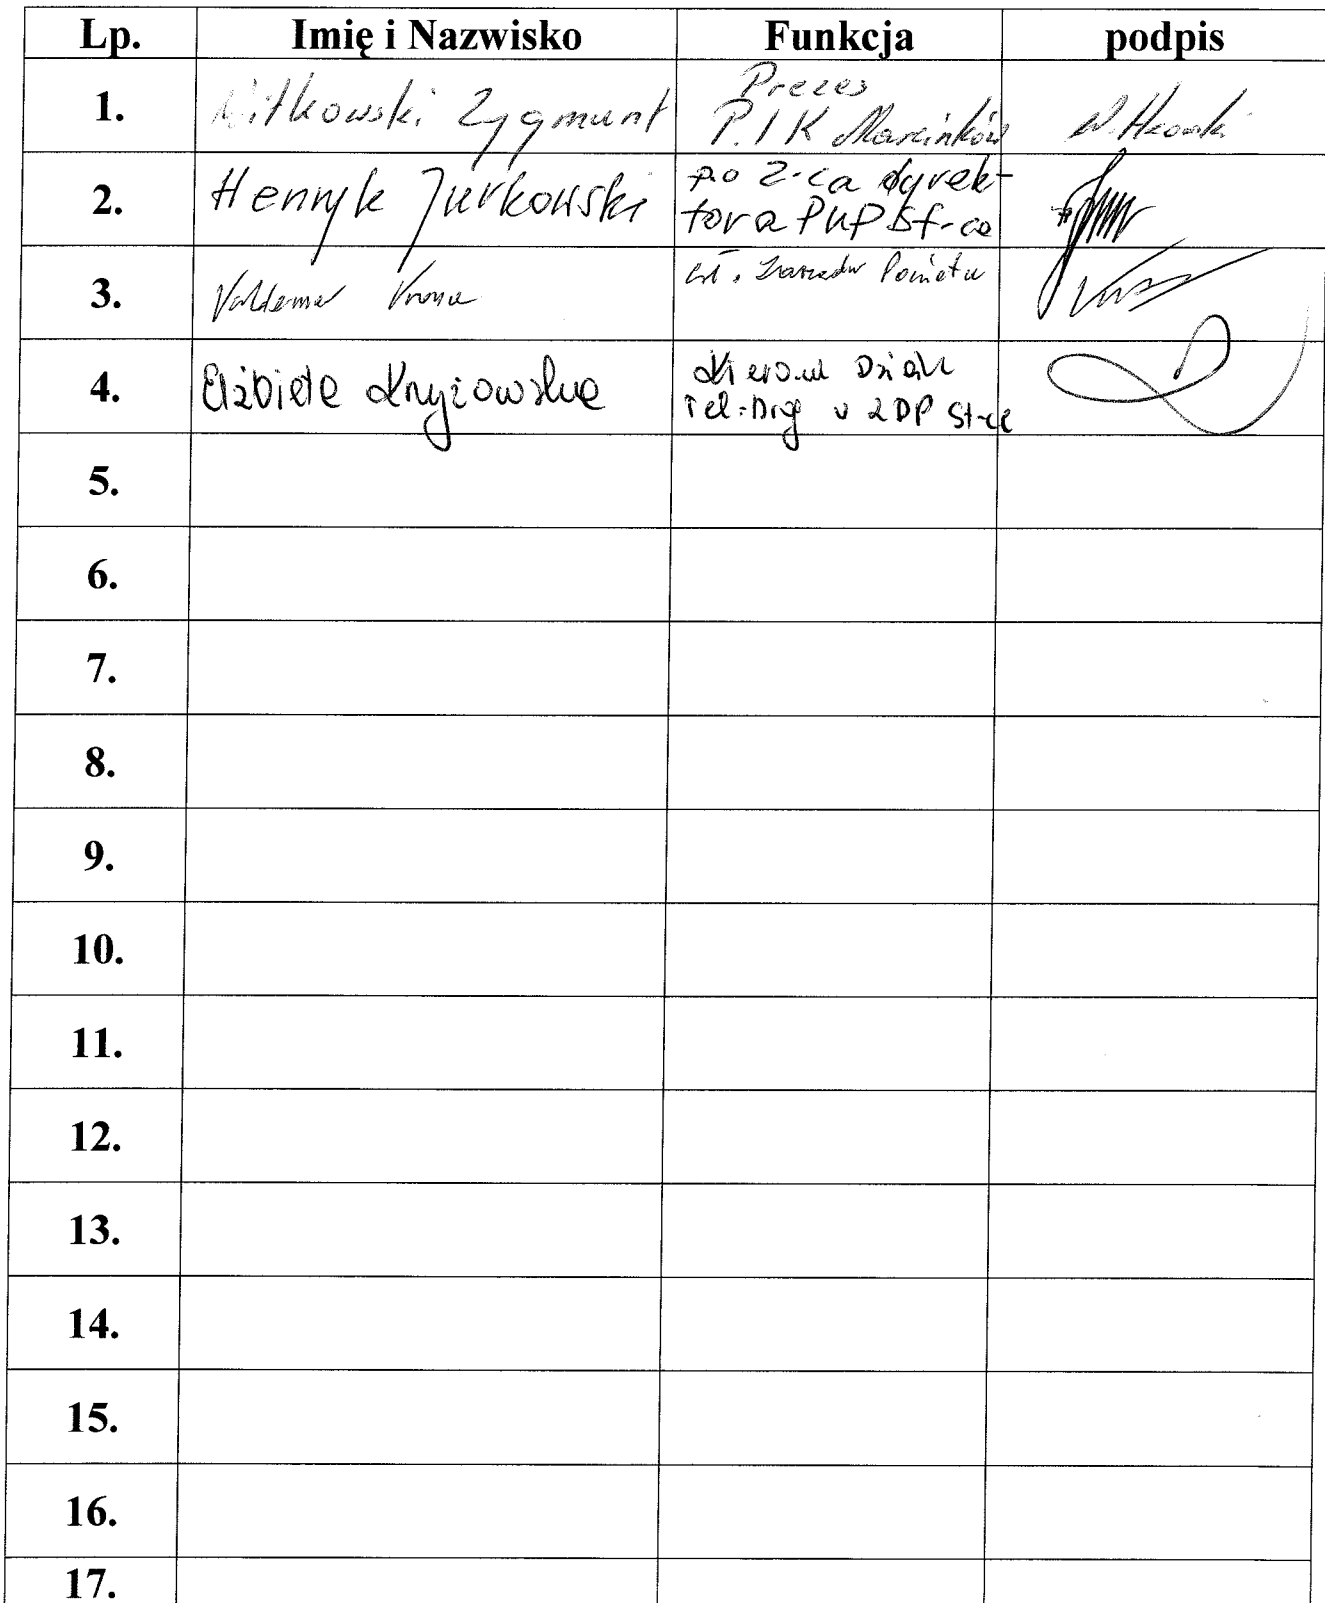 Lp. Imię i Nazwisko Funkcja podpis
1. Witkowski Zygmunt Prezes
P.IK Marcinków Witkowski
2. Henryk Jurkowski po Z-ca dyrek-
tora PUP St-ce
3. Valdemar czł. Zarządu Powiatu
4. Elżbieta Kierown Działu
w ZDP St-ce
5.
6.
7.
8.
9.
10.
11.
12.
13.
14.
15.
16.
17.